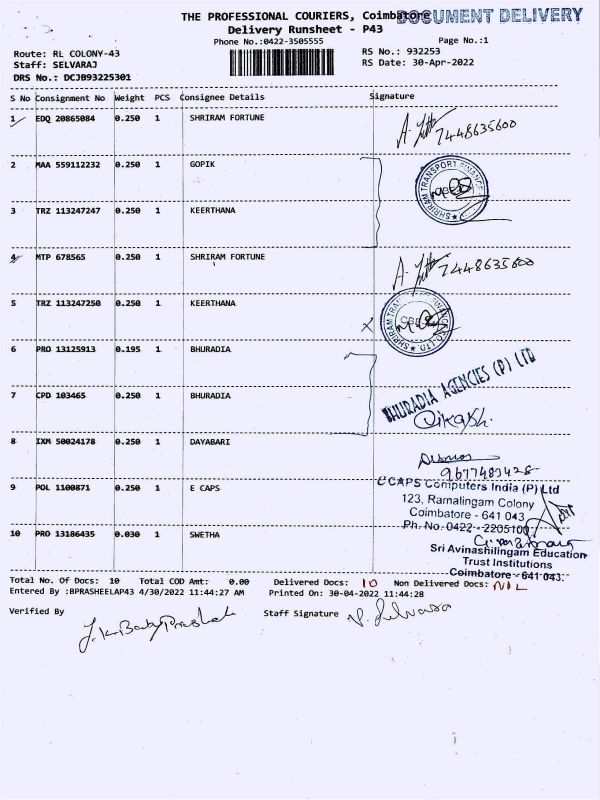 THE PROFESSIONAL COURIERS, Coimbatore
DOCUMENT DELIVERY
Delivery Runsheet - P43
Phone No.:0422-3505555
Page No.:1
Route: RL COLONY-43
RS No.: 932253
Staff: SELVARAJ
RS Date: 30-Apr-2022
DRS No.: DCJB93225301
S No Consignment No Weight PCS Consignee Details Signature
1 EDQ 20865084 0.250 1 SHRIRAM FORTUNE
7448635600
2 MAA 559112232 0.250 1 GOPIK
SHRIRAM TRANSPORT FINANCE
3 TRZ 113247247 0.250 1 KEERTHANA
4 MTP 678565 0.250 1 SHRIRAM FORTUNE
7448635600
5 TRZ 113247250 0.250 1 KEERTHANA
6 PRO 13125913 0.195 1 BHURADIA
BHURADIA AGENCIES (P) LTD
7 CPD 103465 0.250 1 BHURADIA
Vikash.
8 IXM 50024178 0.250 1 DAYABARI
9677483428
9 POL 1100871 0.250 1 E CAPS
CAPS Computers India (P) Ltd
123, Ramalingam Colony
Coimbatore - 641 043
Ph. No. 0422 - 2205100
10 PRO 13186435 0.030 1 SWETHA
Sri Avinashilingam Education
Trust Institutions
Coimbatore - 641 043.
Total No. Of Docs: 10 Total COD Amt: 0.00 Delivered Docs: 10 Non Delivered Docs: NIL
Entered By :BPRASHEELAP43 4/30/2022 11:44:27 AM Printed On: 30-04-2022 11:44:28
Verified By
Staff Signature